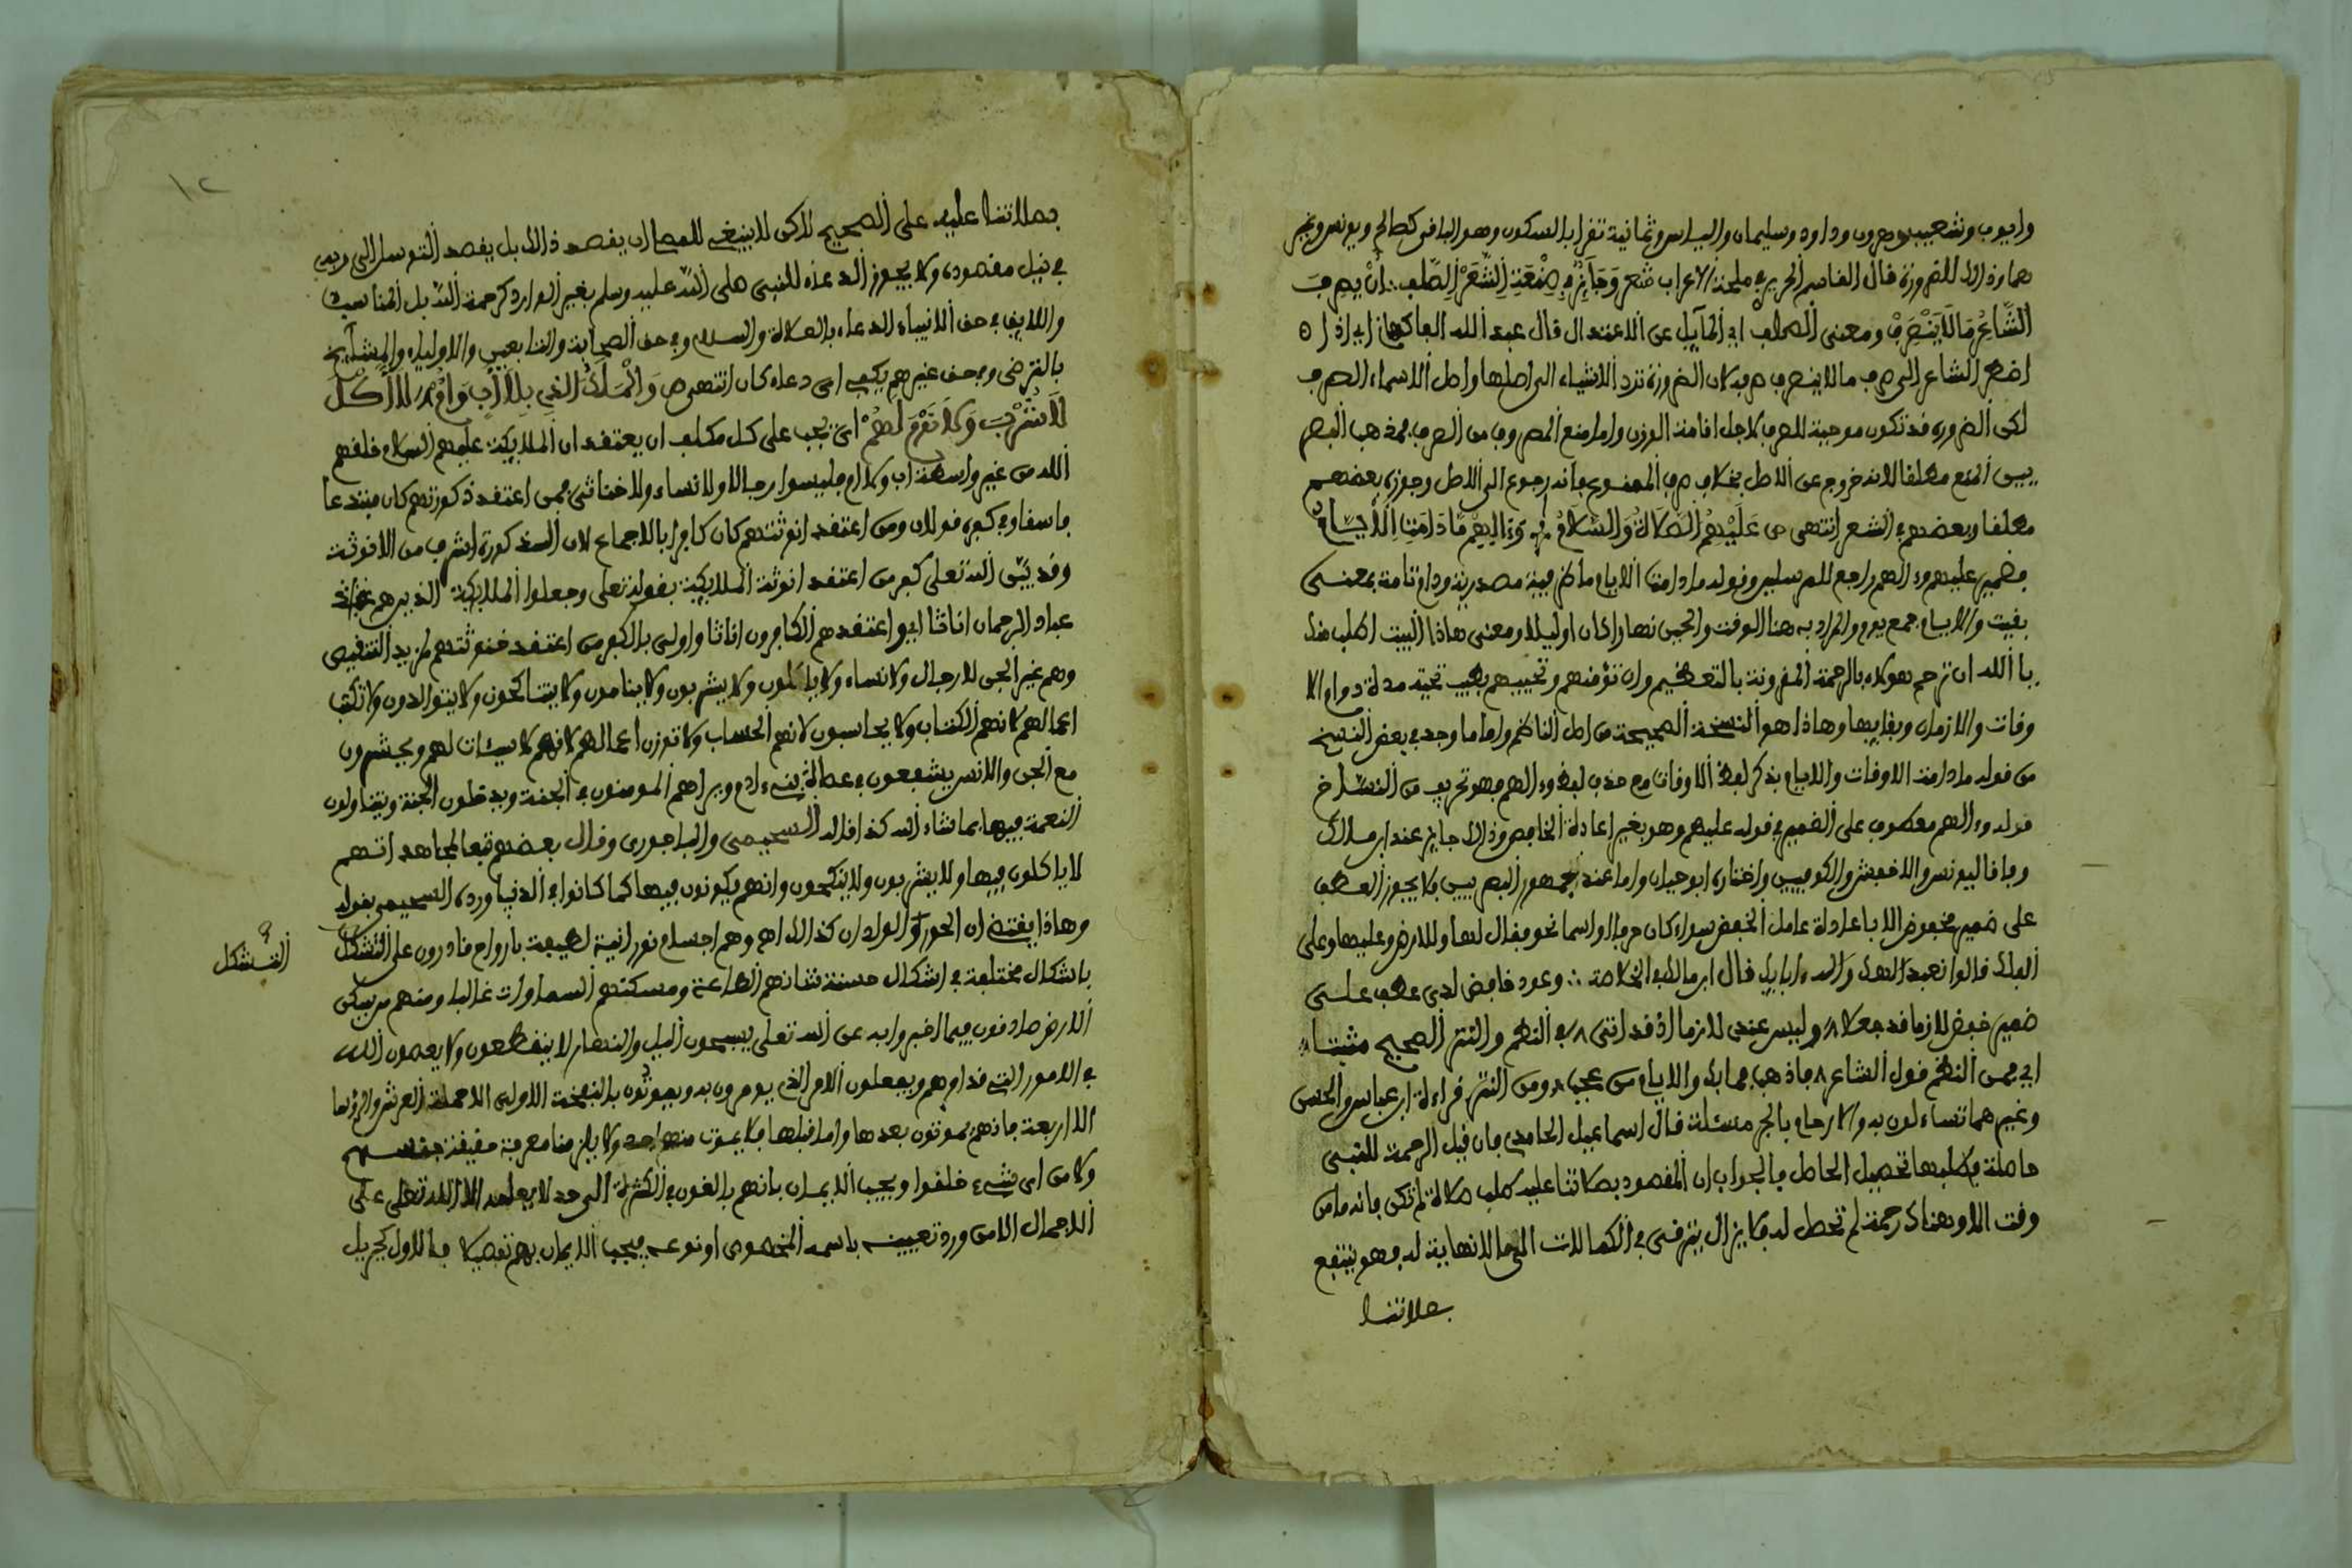 وايوب وشعيب وهرون وداود وسليمان والياس وثمانية تقرا بالسكون وهو الباقى كصالح ويونس وغير
هما وذالك للضرورة قال القاسم الحريرى فى ملحة الاعراب شعر وَجَآئِزٌ فِى صِنْعَةِ الشِّعْرِ الصَّلِف ∴ أَنْ يَصْرِفَ
الشَّاعِرُ مَا لَا يَنْصَرِفْ ومعنى الصلف اى المآيل عن الاعتدال قال عبد الله الفاكهانى اى اذا
اضطر الشاعر الى صرف ما لا ينصرف صرفه لان الضرورة ترد الاشياء الى اصلها واصل الاسماء الصرف
لكن الضرورة قد تكون موجبة للصرف لاجل اقامة الوزن واما منع المصروف من الصرف فمذهب البصر
يين المنع مطلقا لانه خروج عن الاصل بخلاف صرف الممنوع فانه رجوع الى الاصل وجوزه بعضهم
مطلقا وبعضهم فى الشعر انتهى ص عَلَيْهِمُ الصَّلَاةُ وَالسَّلَامْ ∴ وَءَالِهِمْ مَا دَامَتِ الْأَيَّامْ
فضمير عليهم وءالهم راجع للمرسلين وقوله ما دامت الايام ما ظرفية مصدرية ودام تامة بمعنى
بقيت والايام جمع يوم والمراد به هنا الوقت والحين نهارا كان او ليلا ومعنى هاذا البيت اطلب منك
يا الله ان ترحم هولاء بالرحمة المقرونة بالتعظيم وان تؤمنهم وتحييهم بطيب تحية مدة دوام الا
وقات والازمان وبقايها وهاذا هو النسخة الصحيحة من اصل الناظم واما ما وجد فى بعض النسخ
من قوله ما دامت الاوقات والايام بذكر لفظ الاوقات مع حذف لفظ وءالهم فهو تحريف من النساخ
قوله وءالهم معطوف على الضمير فى قوله عليهم وهو بغير اعادة الخافض وذالك جايز عند ابن مالك
وفاقا ليونس والاخفش والكوفيين واختاره ابو حيان واما عند جمهور البصريين فلا يجوز العطف
على ضمير مخفوض الا باعادة عامل الخفض سواء كان حرفا او اسما نحو فقال لها وللارض وعليها وعلى
الفلك قالوا نعبد الهك واله ءابايك قال ابن مالك فى الخلاصة ∴ وعود خافض لدى عطف على
ضمير خفض لازما قد جعلا ∴ وليس عندى لازما اذ قد اتى ∴ فى النظم والنثر الصحيح مثبتا ∴
اى فمن النظم قول الشاعر ∴ فاذهب فما بك والايام من عجب ∴ ومن النثر قراءة ابن عباس والحسن
وغيرهما تساءلون به والارحام بالجر مسئلة قال اسماعيل الحامدى فان قيل الرحمة للنبى
حاصلة فطلبها تحصيل الحاصل فالجواب ان المقصود بصلاتنا عليه طلب صلاة لم تكن فانه ما من
وقت الا وهناك رحمة لم تحصل له فلا يزال يترقى فى الكمالات الى ما لا نهاية له فهو ينتفع
بصلاتنا
١٢
بصلاتنا عليه على الصحيح لاكن لا ينبغى للمصلى ان يقصد ذالك بل يقصد التوسل الى ربه
فى نيل مقصوده ولا يجوز الدعاء للنبى صلى الله عليه وسلم بغير الوارد كرحمه الله بل المناسب
واللايق فى حق الانبياء الدعاء بالصلاة والسلام وفى حق الصحابة والتابعين والاولياء والمشايخ
بالترضى وفى حق غيرهم يكفى اى دعاء كان انتهى ص وَالْمَلَكُ الَّذِى بِلَا أَبٍ وَأُمْ ∴ لَا أَكْلَ
لَا شُرْبَ وَلَا نَوْمَ لَهُمْ اى يجب على كل مكلف ان يعتقد ان الملايكة عليهم السلام خلقهم
الله من غير واسطة اب ولا ام فليسوا رجالا ولا نساء ولا خناثى فمن اعتقد ذكورتهم كان مبتدعا
فاسقا وفى كفره قولان ومن اعتقد انوثتهم كان كافرا بالاجماع لان الذكورة اشرف من الانوثة
وقد بيّن الله تعلى كفر من اعتقد انوثة الملايكة بقوله تعلى وجعلوا الملايكة الذين هم عند
عباد الرحمان اناثا اى واعتقدهم الكافرون اناثا واولى بالكفر من اعتقد خنوثتهم لمزيد التنقيص
وهم غير الجن لا رجال ولا نساء ولا ياكلون ولا يشربون ولا ينامون ولا يتناكحون ولا يتوالدون ولا تكتب
اعمالهم لانهم الكتاب ولا يحاسبون لانهم الحساب ولا توزن اعمالهم لانهم لا سيئات لهم ويحشرون
مع الجن والانس يشفعون فى عصاة بنى ءادم ويراهم المومنون فى الجنة ويدخلون الجنة ويتناولون
النعمة فيها بما شاء الله كذا قال السحيمى والباجورى وقال بعضهم تبعا لمجاهد انهم
لا ياكلون فيها ولا يشربون ولا ينكحون وانهم يكونون فيها كما كانوا فى الدنيا ورده السحيمى بقوله
وهاذا يقتضى ان الحور والولدان كذالك اه وهم اجسام نورانية لطيفة بارواح قادرون على التشكل
التشكل
باشكال مختلفة فى اشكال حسنة شانهم الطاعة ومسكنهم السماوات غالبا ومنهم من يسكن
الارض صادقون فيما اخبروا به عن الله تعلى يسبحون اليل والنهار لا ينقطعون ولا يعصون الله
فى الامور التى قد امرهم ويفعلون الامر الذى يومرون به ويموتون بالنفخة الاولى الا حملة العرش والرؤسا
الاربعة فانهم يموتون بعدها واما قبلها فلا يموت منهم احد ولا يلزمنا معرفة حقيقة جنسهم
ولا من اى شىء خلقوا ويجب الايمان بانهم بالغون فى الكثرة الى حد لا يعلمه الا الله تعلى على
الاجمال الا من ورد تعيينه باسمه المخصوص او نوعه فيجب الايمان بهم تفصيلا فالاول كجبريل